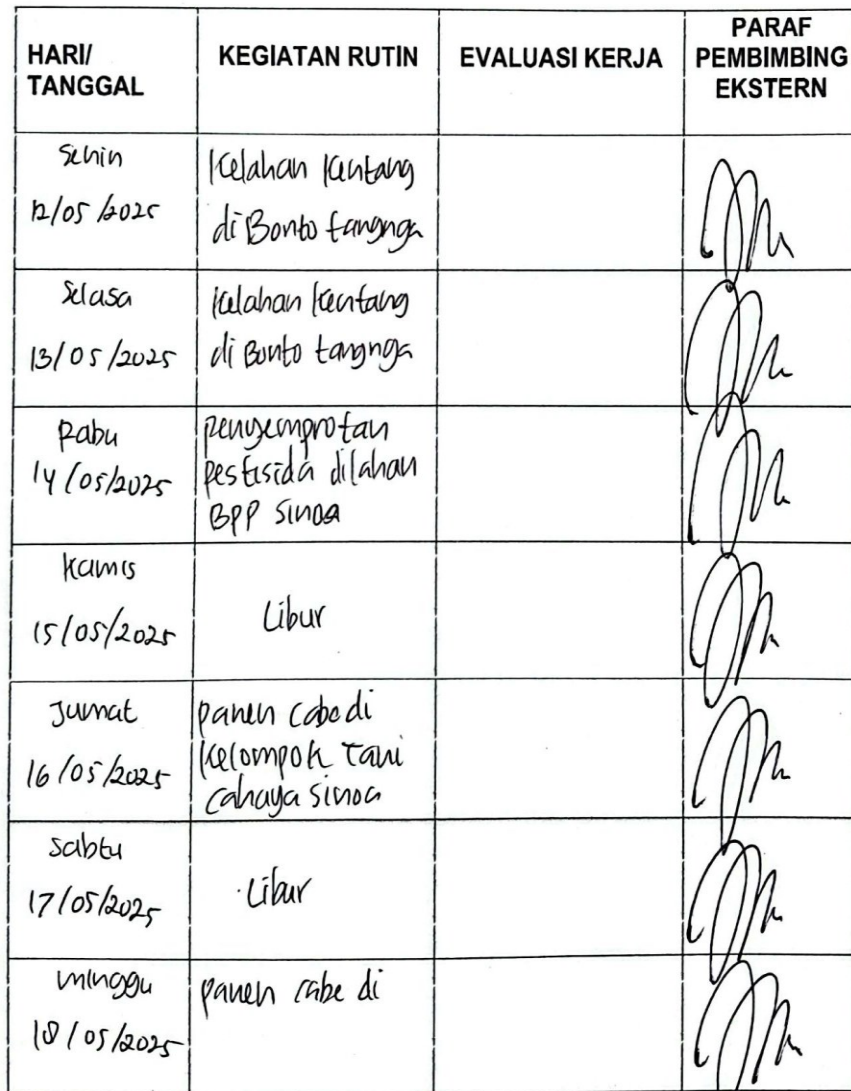 HARI/ TANGGAL
KEGIATAN RUTIN
EVALUASI KERJA
PARAF PEMBIMBING EKSTERN
Senin
12/05/2025
Kelahan Kentang
di Bonto tangnga
Selasa
13/05/2025
Kelahan Kentang
di Bonto tangnga
Rabu
14/05/2025
penyemprotan
pestisida dilahan
BPP Sinoa
Kamis
15/05/2025
Libur
Jumat
16/05/2025
panen cabe di
Kelompok Tani
Cahaya Sinoa
Sabtu
17/05/2025
Libur
minggu
18/05/2025
panen cabe di